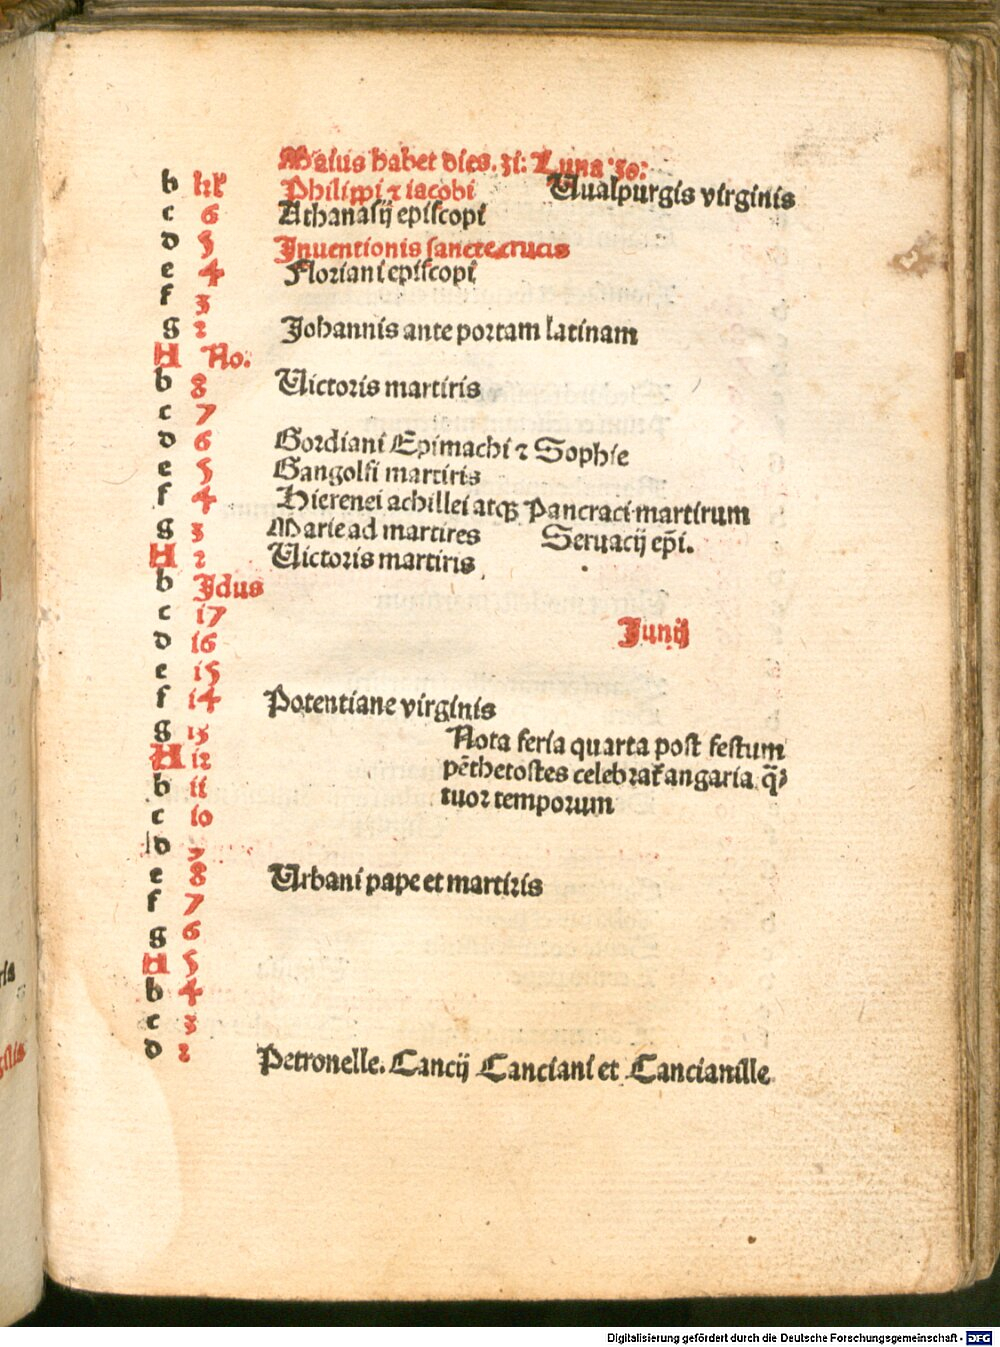 Maius habet dies. 31: Luna 30:
b kk Philippi ⁊ iacobi Uualpurgis virginis
c 6 Athanasij episcopi
d 5 Inuentionis sancte crucis
e 4 Floriani episcopi
f 3
g 2 Johannis ante portam latinam
A No.
b 8 Uictoris martiris
c 7
d 6 Gordiani Epimachi ⁊ Sophie
e 5 Gangolfi martiris
f 4 Hierenei achillei atqꝫ Pancraci martirum
g 3 Marie ad martires Seruacij ep̄i.
A 2 Uictoris martiris
b Idus
c 17
Junij
d 16
e 15
f 14 Potentiane virginis
g 13 Nota feria quarta post festum
A 12 pēthecostes celebrat angaria q̄
b 11 tuor temporum
c 10
d 9
e 8 Urbani pape et martiris
f 7
g 6
A 5
b 4
c 3
d 2 Petronelle. Cancij Canciani et Cancianille
Digitalisierung gefördert durch die Deutsche Forschungsgemeinschaft - DFG